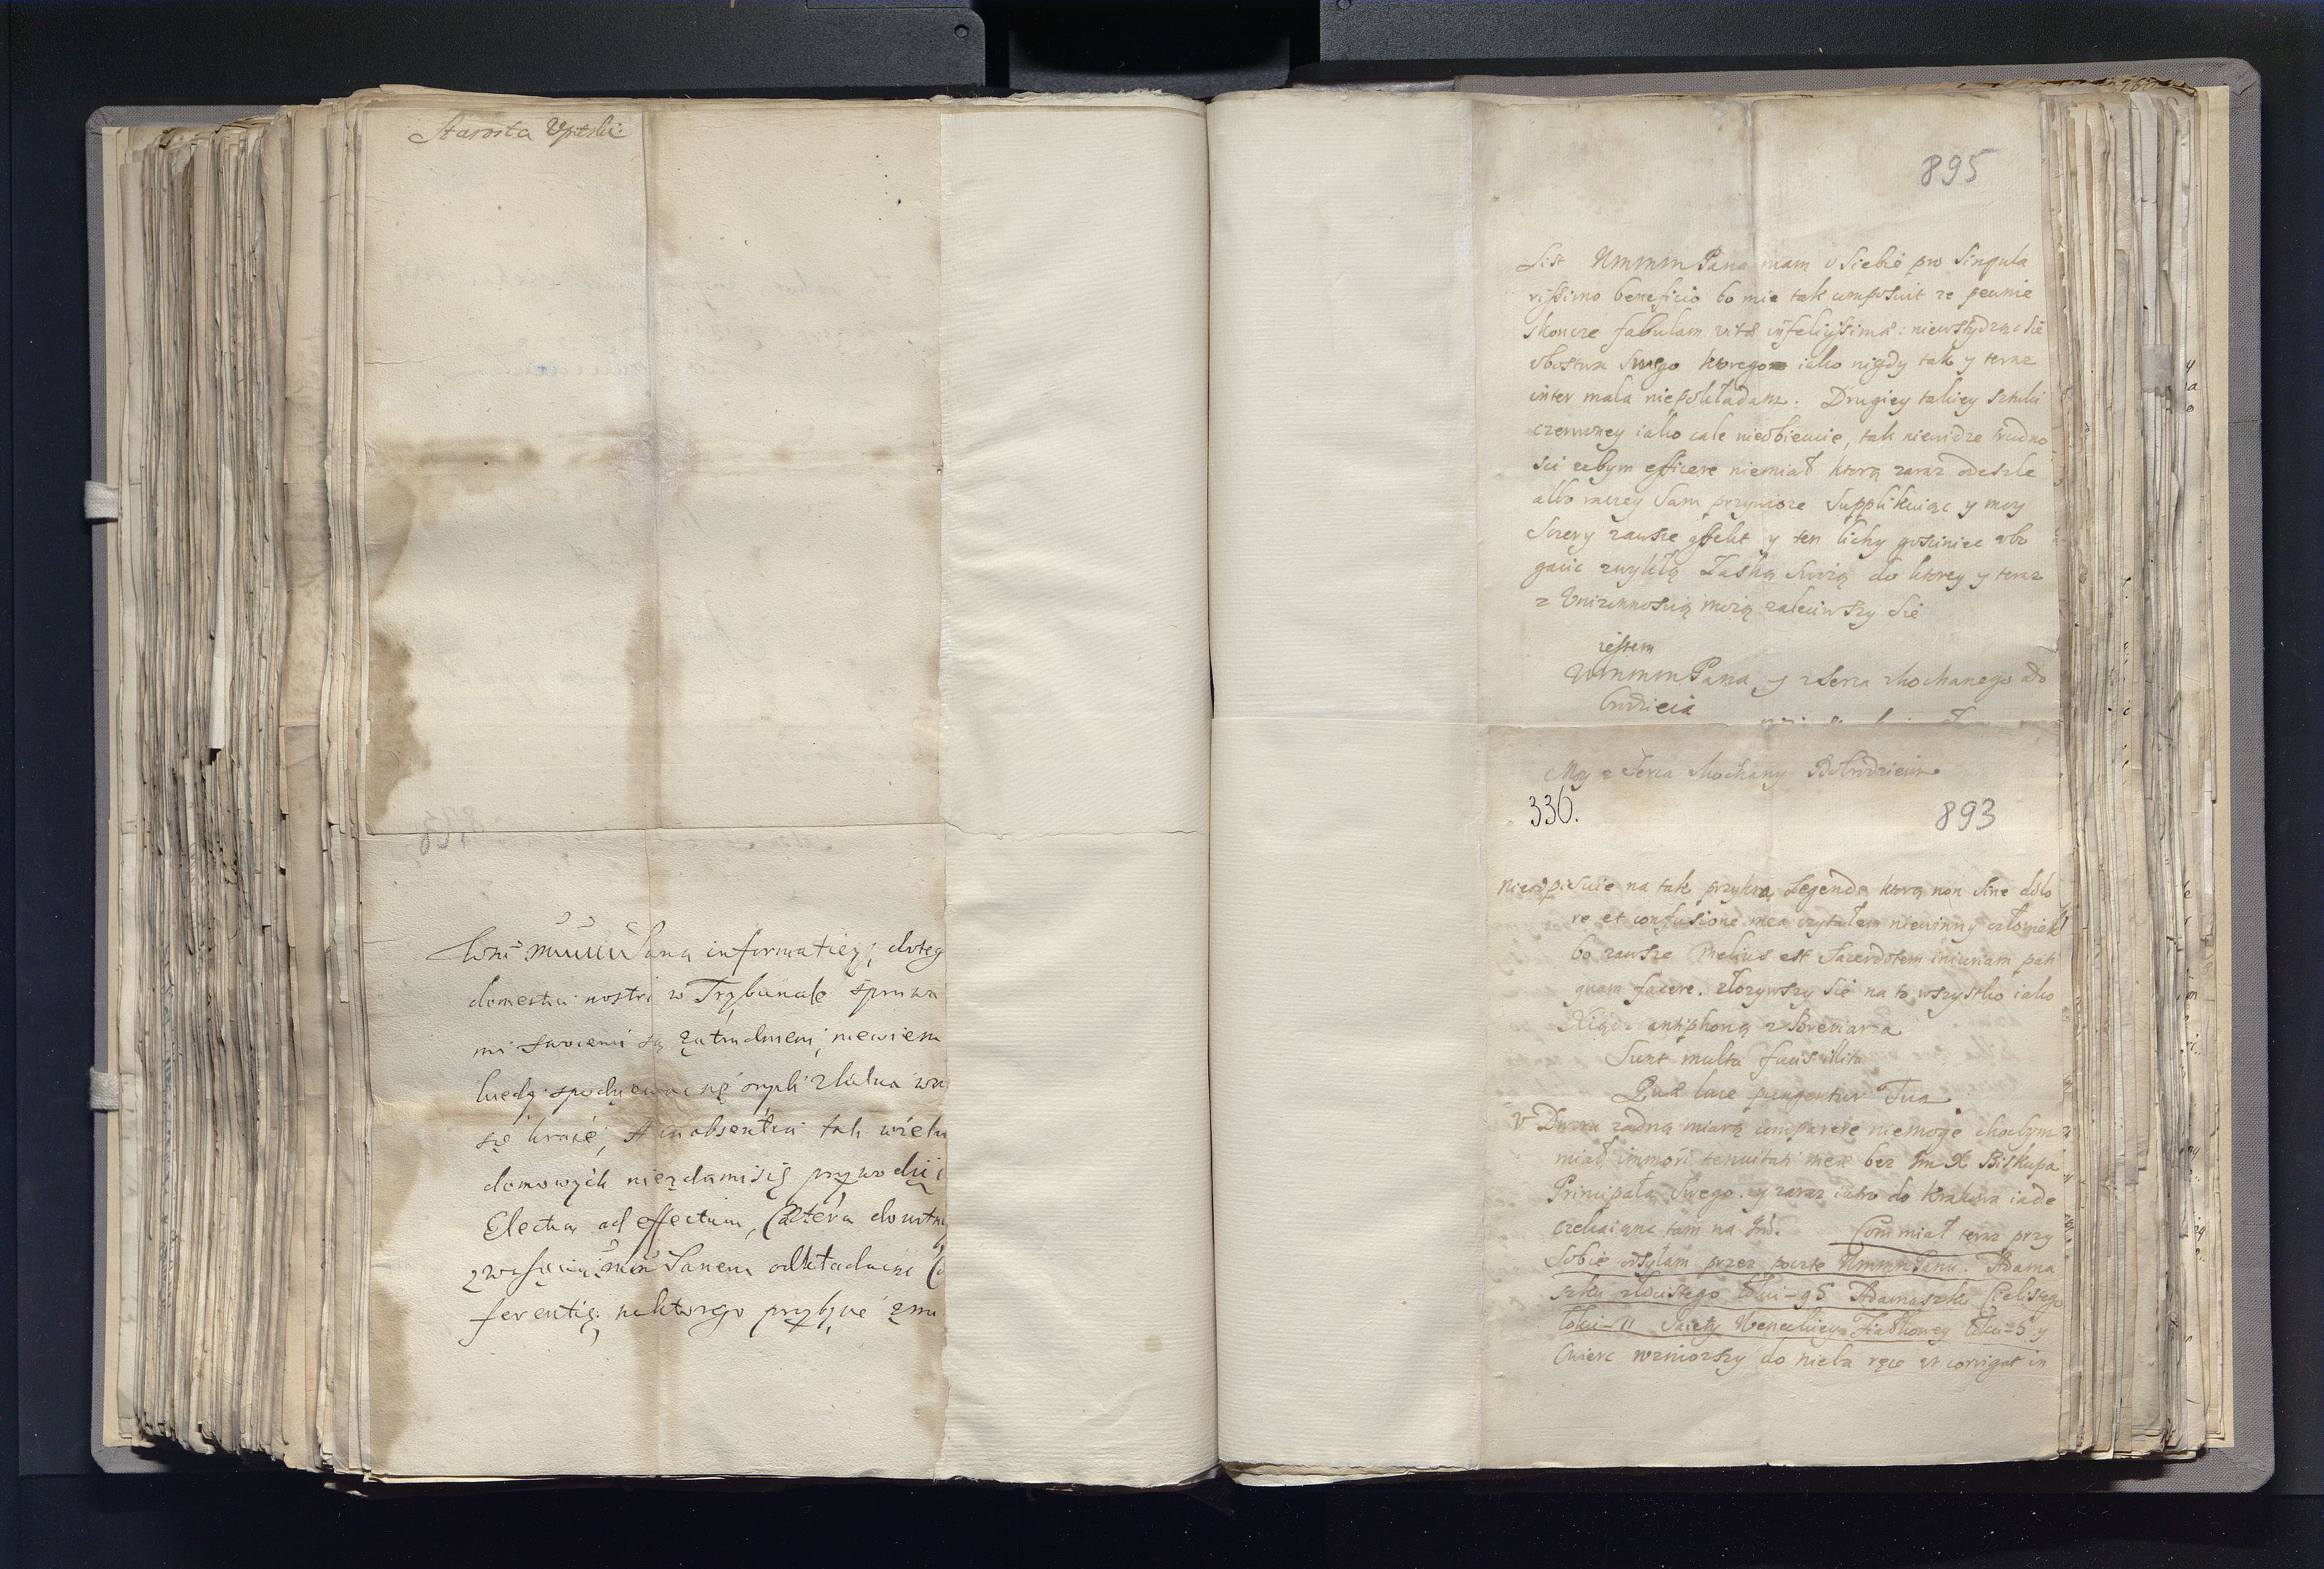 Starosta Upitski
Wm̃ mmmm Pana informatięy, doteg
domestici nostri w Trybunale sprawa
mi swoiemi są zatrudnieni, niewiem
kiedy spodziewac się onych zlitwa wra
się kraie, A in absentia tak wielu
domowych niezdamisię przywodzi
Electią ad effectum, Cætera do ustn
Panem odkładaiąc Co
ferentię; naktorego przybycie
895
List Wmmm Pana mam u Siebie pro Singula
rissimo beneficio bo mie tak composuit ze pewnie
skoncze fabulam vitæ infelicissimæ: niewstydząc sie
vbostwa Swego ktorego iako nigdy tak y teraz
inter mala niepokładam. Drugiey takiey sztuki
czerwoney iako cale nieobiecuie, tak niewidze trudno
sci zebym efficere niemiał ktorą zaraz odeszle
albo raczey Sam przyniose Supplikuiąc y moy
Sczery zawsze affekt y ten lichy gosciniec vbo
gacic zwykłą Łaską Swoią do ktorey y teraz
z Unizonnoscią moią zaleciwszy Sie
iestem
WmmmPana y z Serca Kochanego Do
brodzieia
Moy z Serca Kochany Dobrodzieiu
336.
893
Nieodpisuie na tak przykrą Legende ktorą non Sine dolo
re et confusione mea czytałem niewinny człowiek
bo zawsze melius est Sacerdotem iniuriam pati
quam facere. złozywszy Sie na to wszystko iako
Xiądz antiphoną z Brewiarza
Sunt multa fucis illita
Quæ luce purgentur Tua
miał immori tenuitati meæ bez Im X Biskupa
Principała Swego. y zaraz iutro do Krakowa iade
czekaiąc tam na Com miał teraz przy
Sobie odsyłam przez poczte WmmmPanu. Adama
szku złocistego łokci-95 Adamaszku Cielistego
łokci-11 Saiety Weneckiey Fiałkowey łokci-5 y
Cwierc wzniozszy do nieba ręce vt corrigat in